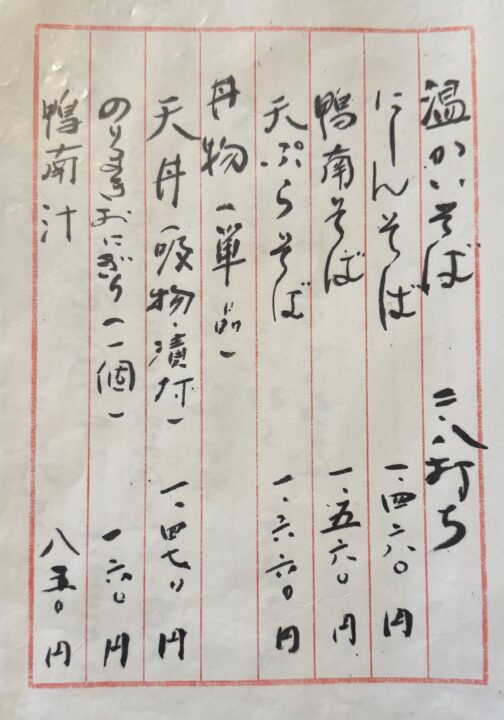 温かいそば 二・八打ち
にしんそば 一、四六〇円
鴨南そば 一、五六〇円
天ぷらそば 一、六六〇円
丼物（単品）
天丼（吸物・漬付） 一、四七〇円
のりまきおにぎり（一個） 一六〇円
鴨南汁 八五〇円